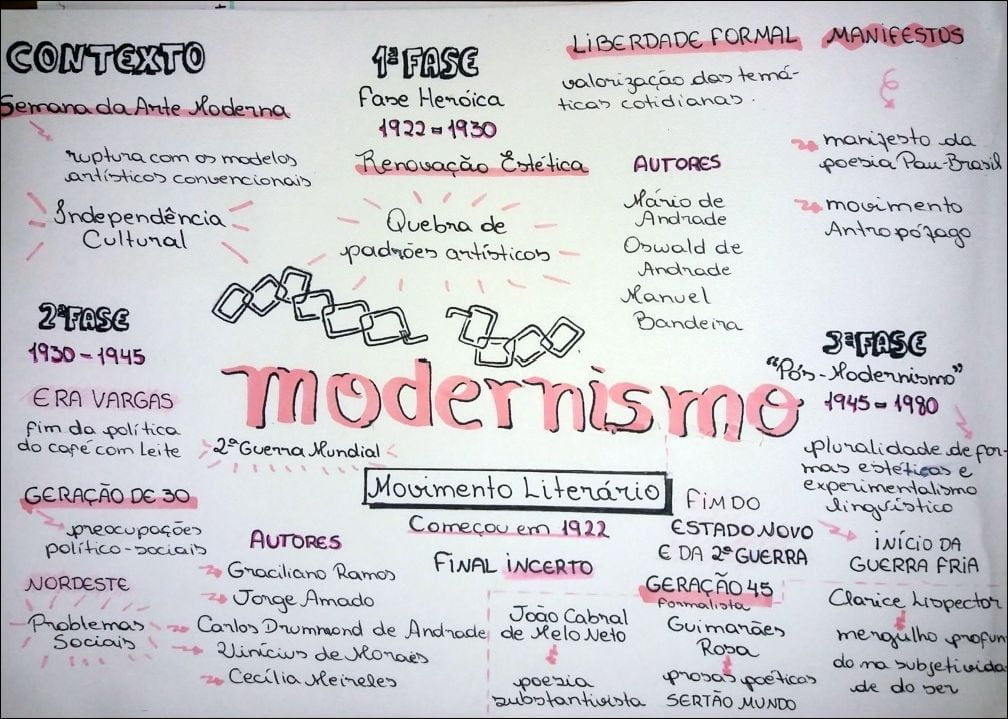 CONTEXTO
Semana da Arte Moderna
ruptura com os modelos
artísticos convencionais
Independência
Cultural
1ª FASE
Fase Heróica
1922 - 1930
Renovação Estética
Quebra de
padrões artísticos
LIBERDADE FORMAL
valorização das temá-
ticas cotidianas.
AUTORES
Mário de
Andrade
Oswald de
Andrade
Manuel
Bandeira
MANIFESTOS
manifesto da
poesia Pau-Brasil
movimento
Antropófago
modernismo
Movimento Literário
Começou em 1922
FINAL INCERTO
2ª FASE
1930 - 1945
ERA VARGAS
fim da política
do café com leite
2ª Guerra Mundial
GERAÇÃO DE 30
preocupações
político-sociais
NORDESTE
Problemas
Sociais
AUTORES
Graciliano Ramos
Jorge Amado
Carlos Drummond de Andrade
Vinícius de Moraes
Cecília Meireles
3ª FASE
"Pós-Modernismo"
1945 - 1980
pluralidade de for-
mas estéticas e
experimentalismo
linguístico
INÍCIO DA
GUERRA FRIA
FIM DO
ESTADO NOVO
E DA 2ª GUERRA
GERAÇÃO 45
formalista
João Cabral
de Melo Neto
poesia
substantivista
Guimarães
Rosa
prosas poéticas
SERTÃO MUNDO
Clarice Lispector
mergulho profun
do na subjetivida
de do ser